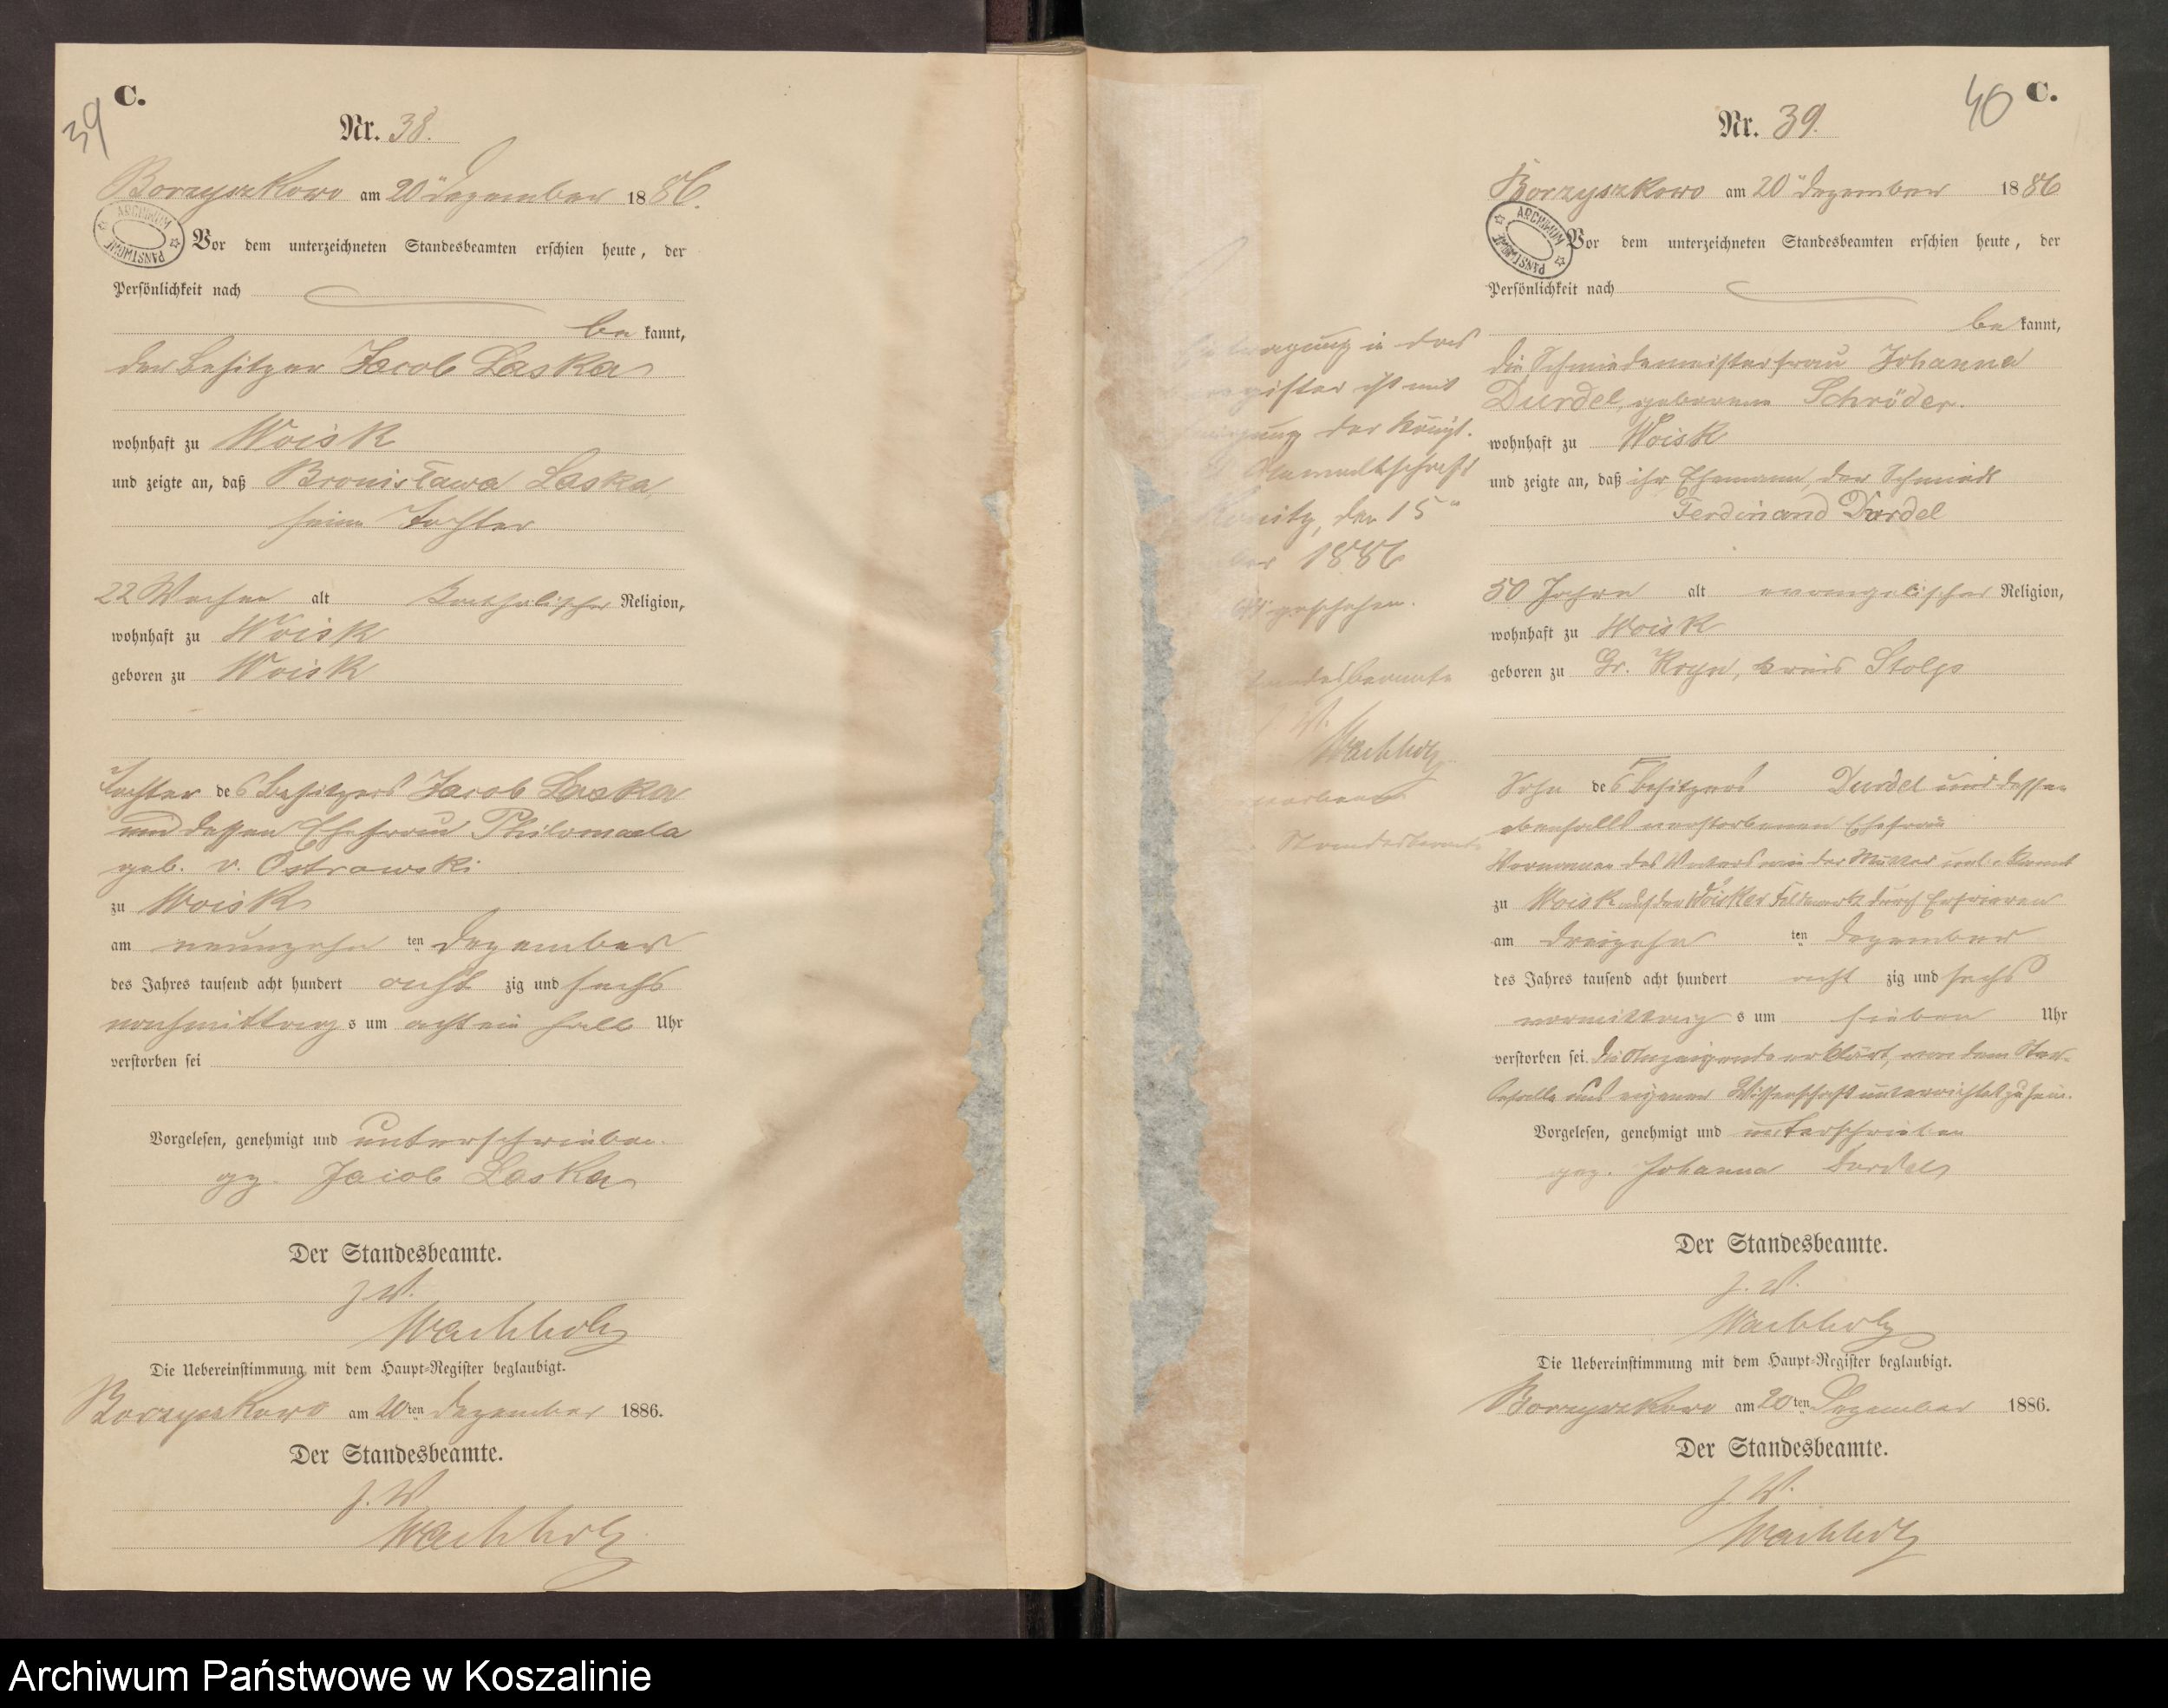 C.
39
Nr. 38.
Borzyszkowo am 20ten Dezember 1886.
ARCHIWUM PAŃSTWOWE
Vor dem unterzeichneten Standesbeamten erschien heute, der
Persönlichkeit nach
be kannt,
der Besitzer Jacob Laska
wohnhaft zu Woisk
und zeigte an, daß Bronisława Laska,
seine Tochter
22 Wochen alt katholischer Religion,
wohnhaft zu Woisk
geboren zu Woisk
Tochter des Besitzers Jacob Laska
und dessen Ehefrau Philomaela
geb. v. Ostrowski
zu Woisk
am neunzehn ten Dezember
des Jahres tausend acht hundert acht zig und sechs
nachmittag s um acht ein halb Uhr
verstorben sei
Vorgelesen, genehmigt und unterschrieben.
gz. Jacob Laska
Der Standesbeamte.
J. V.
Wachholz
Die Uebereinstimmung mit dem Haupt-Register beglaubigt.
Borzyszkowo am 20ten Dezember 1886.
Der Standesbeamte.
J. V.
Wachholz
40 C.
Nr. 39.
Borzyszkowo am 20ten Dezember 1886
ARCHIWUM PAŃSTWOWE
Vor dem unterzeichneten Standesbeamten erschien heute, der
Persönlichkeit nach
be kannt,
die Schmiedemeisterfrau Johanna
Durdel, geborene Schröder.
wohnhaft zu Woisk
und zeigte an, daß ihr Ehemann, der Schmiedt
Ferdinand Durdel
50 Jahre alt evangelischer Religion,
wohnhaft zu Woisk
geboren zu Gr. Kreis Stolp
Sohn des Besitzers Durdel und dessen
ebenfalls verstorbenen Ehefrau
Vornamen des Vaters wie der Mutter unbekannt
zu Woisk auf der Woisker Feldmark durch Erfrieren
am dreizehn ten Dezember
des Jahres tausend acht hundert acht zig und sechs
vormittag s um sieben Uhr
verstorben sei. Die Anzeigende erklärt, von dem Ster-
befalle aus eigener Wissenschaft unterrichtet zu sein.
Vorgelesen, genehmigt und unterschrieben
gez. Johanna Durdel
Der Standesbeamte.
J. V.
Wachholz
Die Uebereinstimmung mit dem Haupt-Register beglaubigt.
Borzyszkowo am 20ten Dezember 1886.
Der Standesbeamte.
J. V.
Wachholz
in das
register ist mit
der Königl.
den 15ten
1886
geschehen.
Standesbeamte
J. V.
Wachholz
Archiwum Państwowe w Koszalinie